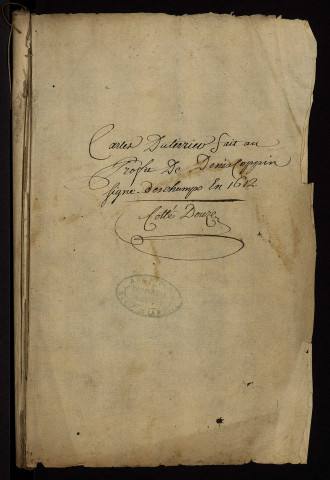 Cartes Duterrier fait au
Profit De Denis Coppin
signé deschamps En 1612
Cotté Douze